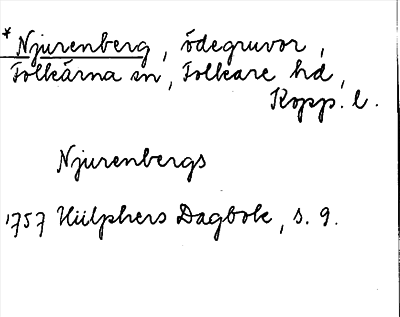 *Njurenberg, ödegruvor,
Folkärna sn, Folkare hd,
Kopp. l.
Njurenbergs
1757 Hülphers Dagbok, s. 9.